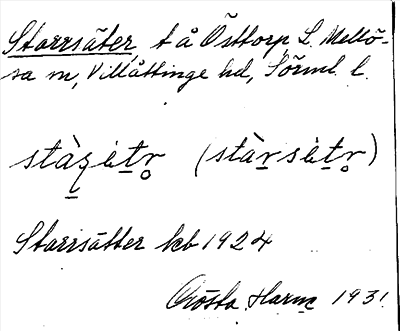 Starrsäter, t å Östtorp, L. Mellö-
sa sn, Villåttinge hd, Sörml. l.
stàʂètr̥ (stàrsètr̥)
Starrsätter kb 1924
Gösta Harm 1931